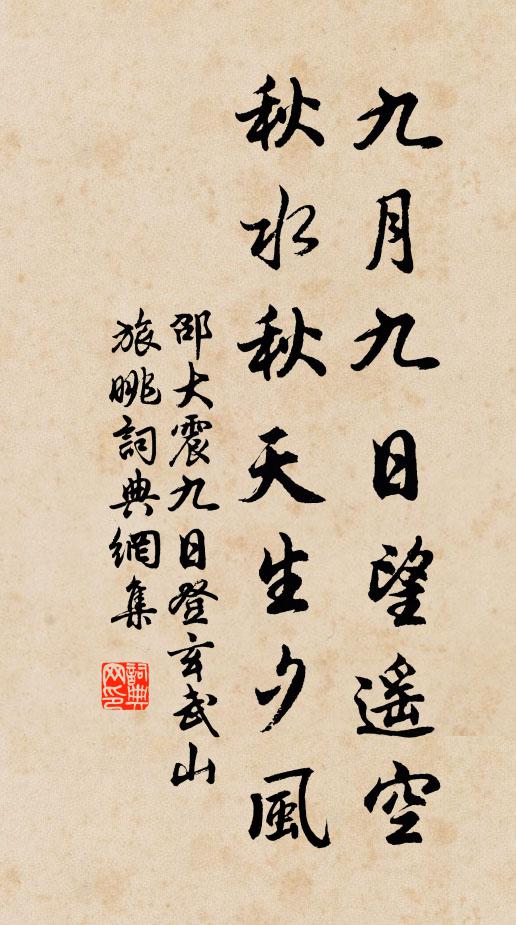 九月九日望遥空
秋水秋天生夕風
邵大震九日登玄武山
旅眺詞典網集
詞典
网印